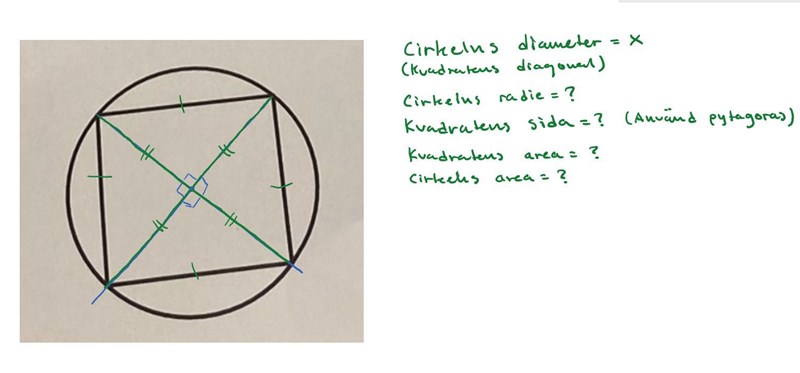 Cirkelns diameter = x
(Kvadratens diagonal)
Cirkelns radie = ?
Kvadratens sida = ? (Använd pytagoras)
Kvadratens area = ?
Cirkelns area = ?